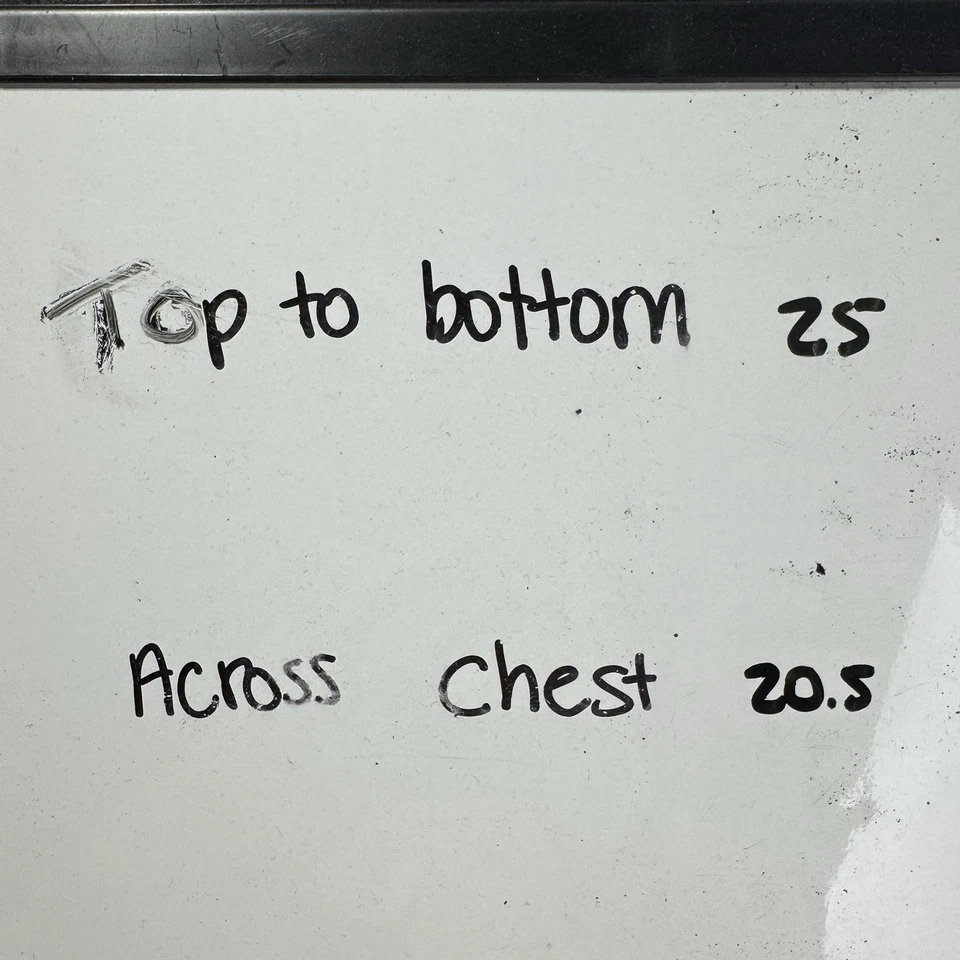 Top to bottom 25
Across Chest 20.5